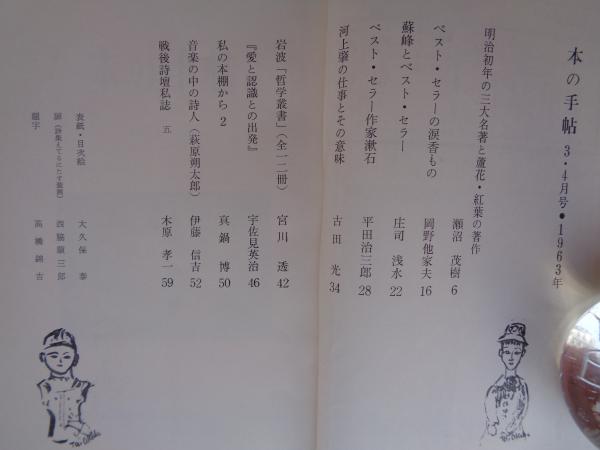 本の手帖 3・4月号●1963年
明治初年の三大名著と蘆花・紅葉の著作 瀬沼茂樹 6
ベスト・セラーの涙香もの 岡野他家夫 16
蘇峰とベスト・セラー 庄司浅水 22
ベスト・セラー作家漱石 平田治三郎 28
河上肇の仕事とその意味 古田光 34
岩波「哲学叢書」(全一二冊) 宮川透 42
『愛と認識との出発』 宇佐見英治 46
私の本棚から 2 真鍋博 50
音楽の中の詩人(萩原朔太郎) 伊藤信吉 52
戦後詩壇私誌 五 木原孝一 59
表紙・目次絵 大久保泰
扉(詩集えてるにたす装画) 西脇順三郎
題字 高橋錦吉